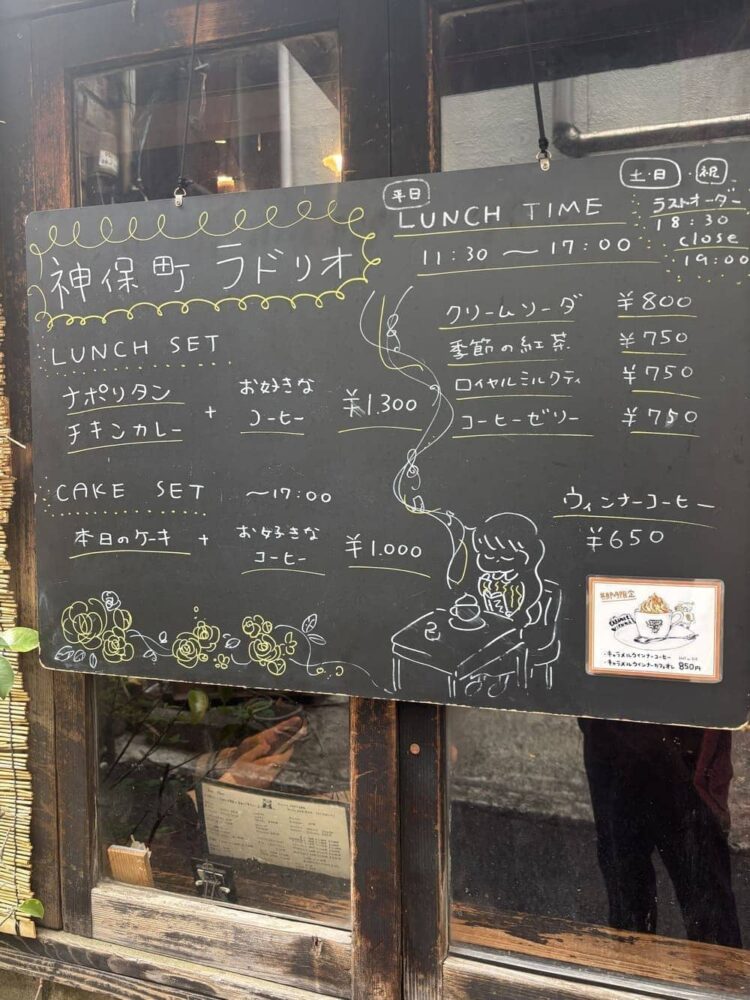 神保町 ラドリオ
LUNCH SET
ナポリタン
チキンカレー
+
お好きな
コーヒー
¥1.300
CAKE SET ~17:00
本日のケーキ +
お好きな
コーヒー
¥1.000
平日
LUNCH TIME
11:30 ~ 17:00
土・日 祝
ラストオーダー
18:30
close
19:00
クリームソーダ ¥800
季節の紅茶 ¥750
ロイヤルミルクティ ¥750
コーヒーゼリー ¥750
ウィンナーコーヒー
¥650
・キャラメルウインナーコーヒー
・キャラメルウインナーカフェオレ 850円